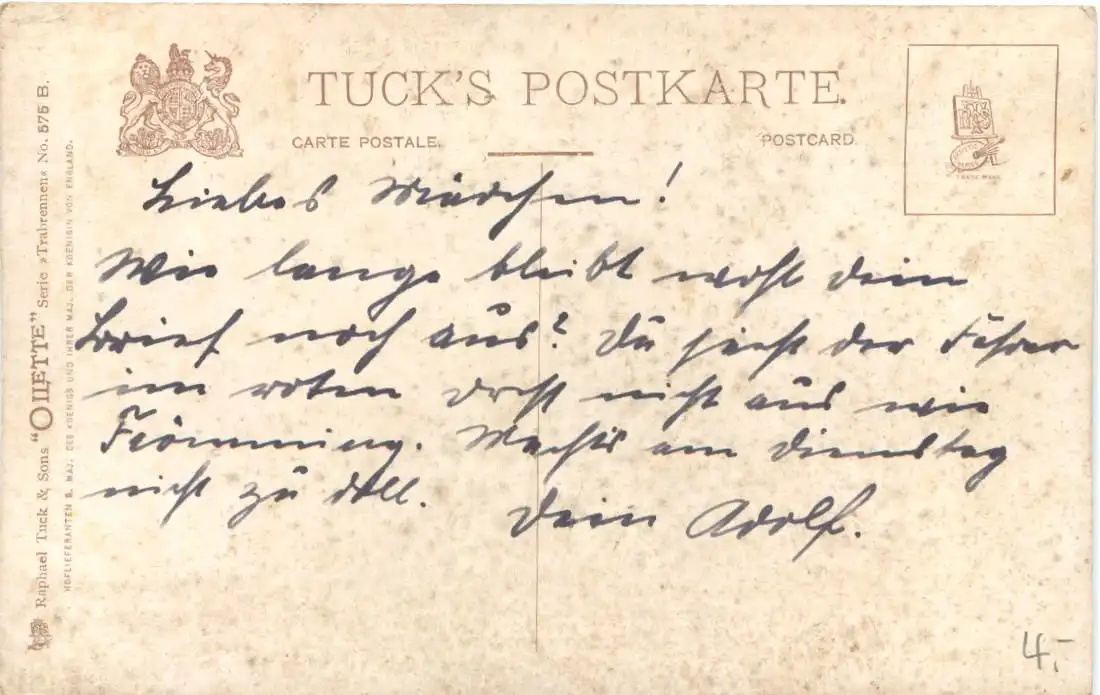 TUCK'S POSTKARTE.
CARTE POSTALE.
POSTCARD
TRADE MARK
Raphael Tuck & Sons "OILETTE" Serie »Trabrennen« No. 575 B.
HOFLIEFERANTEN S. MAJ. DES KOENIGS UND IHRER MAJ. DER KOENIGIN VON ENGLAND.
Liebes Mädchen!
Wie lange bleibt wohl dein
Brief noch aus? Du sieht der Fahrer
im roten nicht aus wie
Frömming. Macht's am Dienstag
nicht zu doll.
Dein Adolf.
4.-